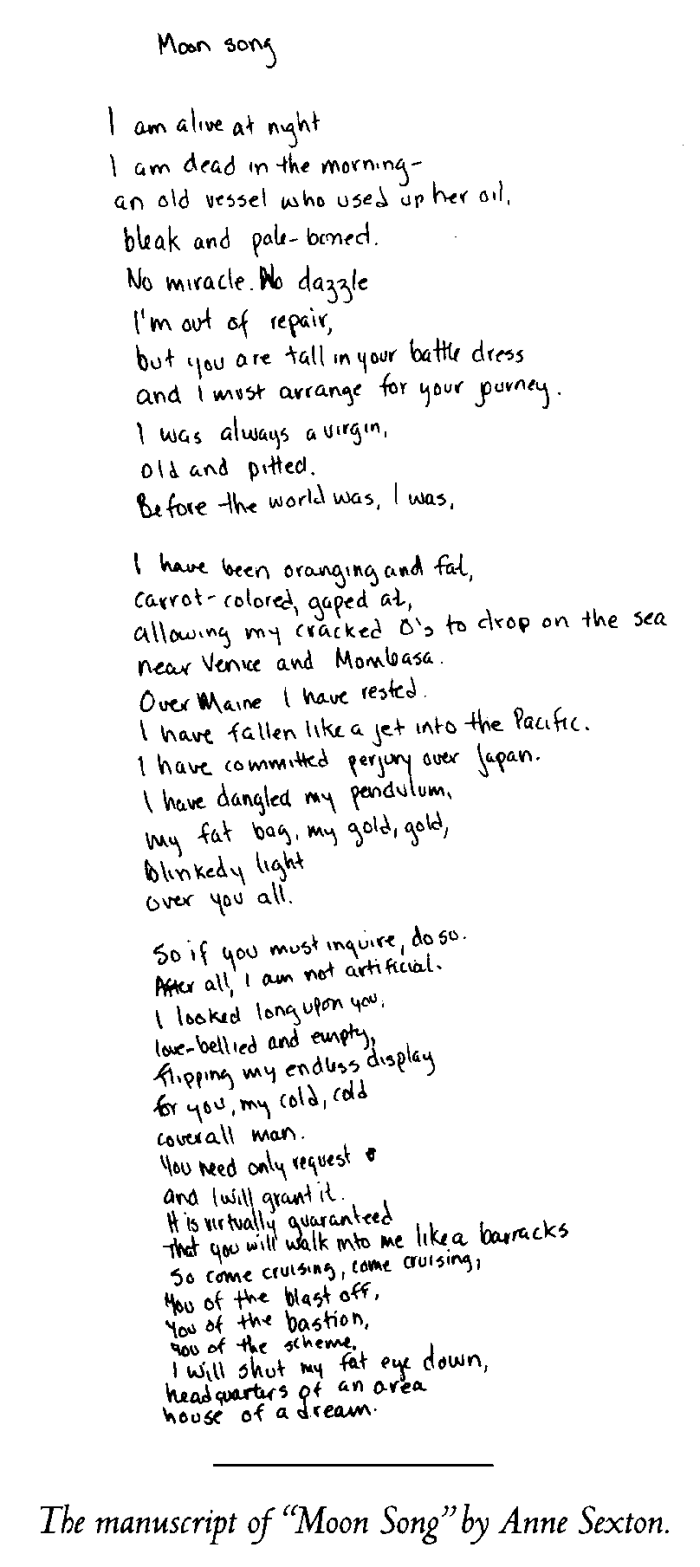 Moon song
I am alive at night
I am dead in the morning-
an old vessel who used up her oil,
bleak and pale-boned.
No miracle. No dazzle
I'm out of repair,
but you are tall in your battle dress
and I must arrange for your journey.
I was always a virgin,
old and pitted.
Before the world was, I was,
I have been oranging and fat,
carrot-colored, gaped at,
allowing my cracked O's to drop on the sea
near Venice and Mombasa.
Over Maine I have rested.
I have fallen like a jet into the Pacific.
I have committed perjury over Japan.
I have dangled my pendulum,
my fat bag, my gold, gold,
blinkedy light
over you all.
So if you must inquire, do so.
After all, I am not artificial.
I looked long upon you,
love-bellied and empty,
flipping my endless display
for you, my cold, cold
coverall man.
You need only request
and I will grant it.
It is virtually guaranteed
that you will walk into me like a barracks
So come cruising, come cruising,
You of the blast off,
You of the bastion,
you of the scheme,
I will shut my fat eye down,
headquarters of an area
house of a dream.
The manuscript of “Moon Song” by Anne Sexton.